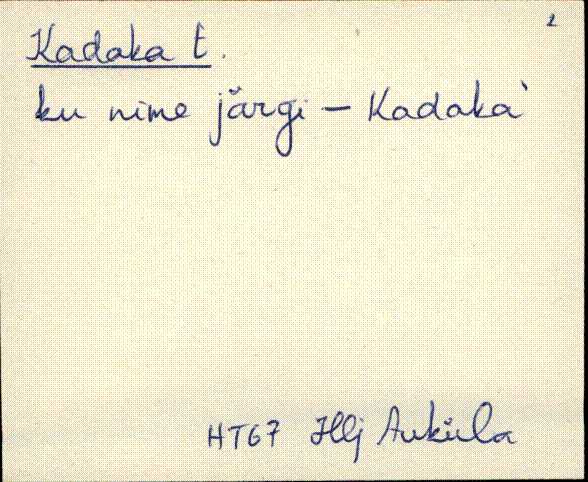 2
Kadaka t.
ku nime järgi – Kadaka`
HT67 Hlj Auküla